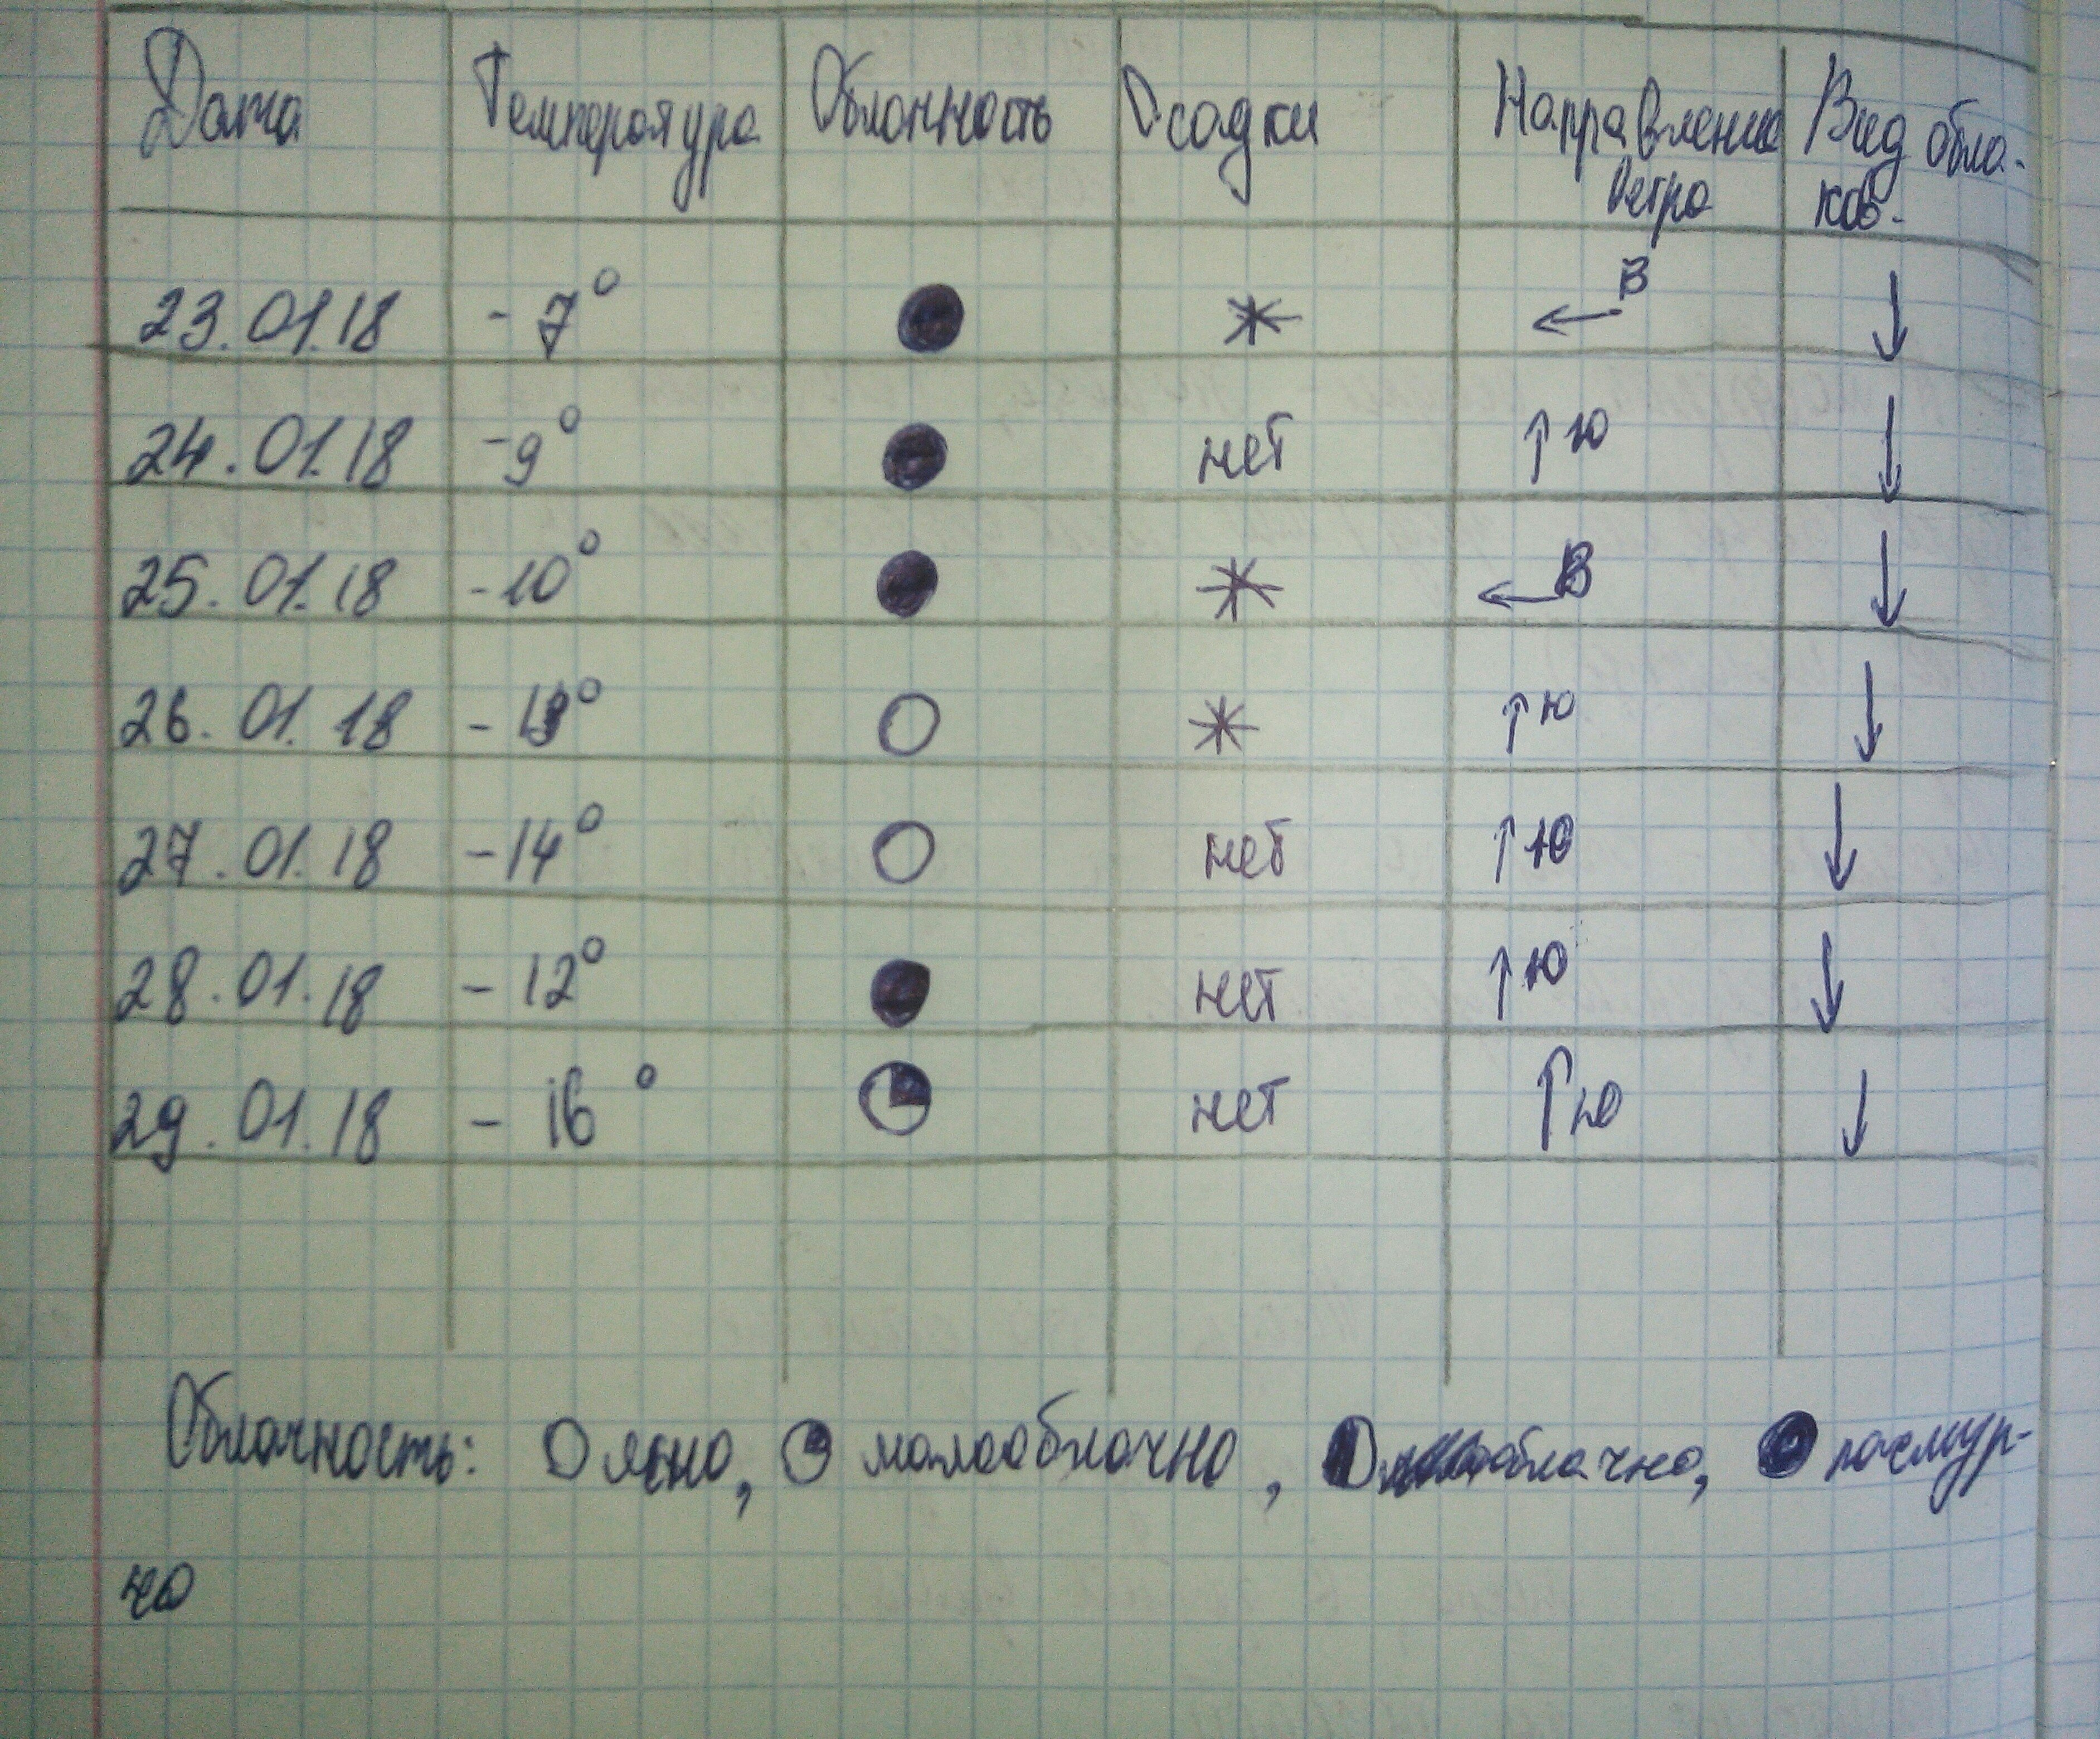 Дата Температура Облачность Осадки Направление Вид обла-
ветра ков.
23.01.18 -7° ← В ↓
24.01.18 -9° нет ↑ Ю ↓
25.01.18 -10° ← В ↓
26.01.18 ↑ Ю ↓
27.01.18 -14° нет ↑ Ю ↓
28.01.18 -12° нет ↑ Ю ↓
29.01.18 -16° нет ↑ Ю ↓
Облачность: ясно, малооблачно, облачно, пасмур-
но